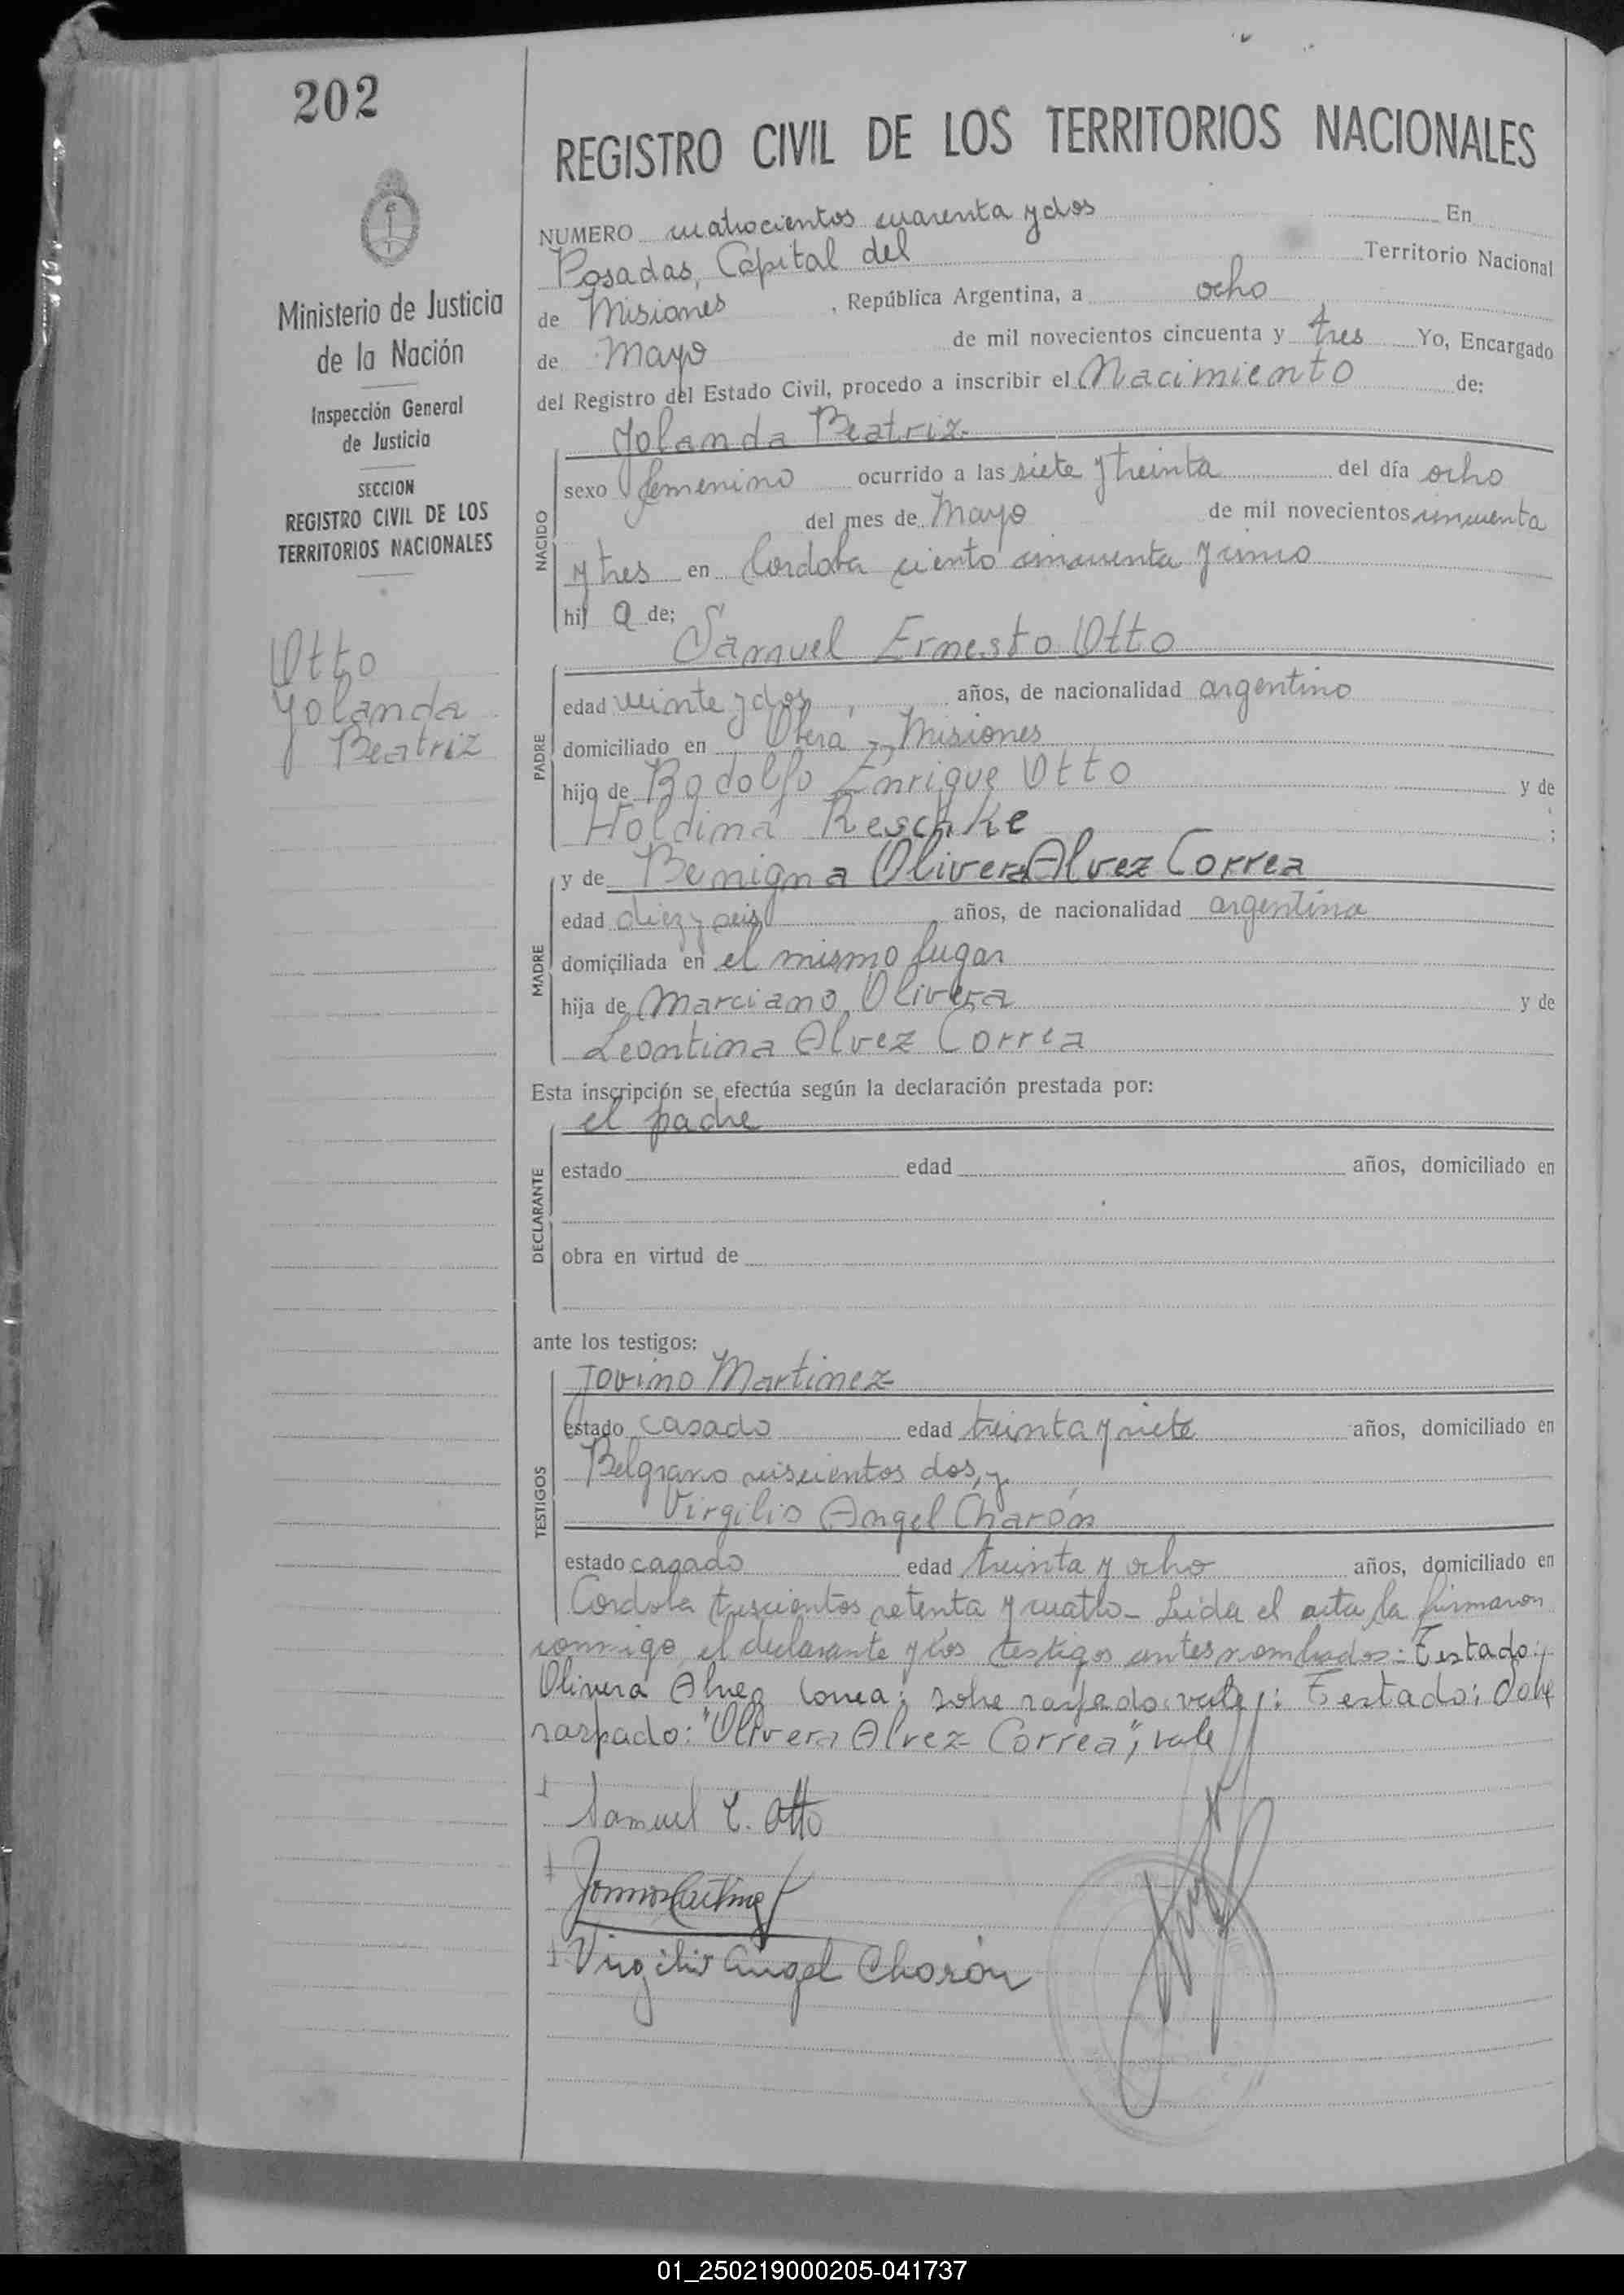 202
Ministerio de Justicia
de la Nación
Inspección General
de Justicia
SECCION
REGISTRO CIVIL DE LOS
TERRITORIOS NACIONALES
Otto
Yolanda
Beatriz
REGISTRO CIVIL DE LOS TERRITORIOS NACIONALES
NUMERO cuatrocientos cuarenta y dos En
Posadas, Capital del Territorio Nacional
de Misiones , República Argentina, a ocho
de Mayo de mil novecientos cincuenta y tres Yo, Encargado
del Registro del Estado Civil, procedo a inscribir el Nacimiento de:
Yolanda Beatriz
NACIDO
sexo femenino ocurrido a las siete y treinta del día ocho
del mes de Mayo de mil novecientos cincuenta
y tres en Cordoba ciento cincuenta y cinco
hij a de:
Samuel Ernesto Otto
PADRE
edad veinte y dos años, de nacionalidad argentino
domiciliado en Oberá - Misiones
hijo de Rodolfo Enrique Otto y de
Holdina Reschke ;
MADRE
y de Benigna Olivera Alvez Correa
edad diez y seis años, de nacionalidad argentina
domiciliada en el mismo lugar
hija de Marciano Olivera y de
Leontina Alvez Correa
Esta inscripción se efectúa según la declaración prestada por:
el padre
DECLARANTE
estado edad años, domiciliado en
obra en virtud de
ante los testigos:
TESTIGOS
Jovino Martinez
estado casado edad treinta y siete años, domiciliado en
Belgrano seiscientos dos, y
Virgilio Angel Charón
estado casado edad treinta y ocho años, domiciliado en
Cordoba trescientos setenta y cuatro- Leida el acta la firmaron
conmigo el declarante y los testigos antes nombrados: Testado:
Olivera Alvez Correa: sobre raspado: vale: Testado: Sobre
raspado: "Olivera Alvez Correa", vale
Samuel E. Otto
Virgilio Angel Charón
01_250219000205-041737